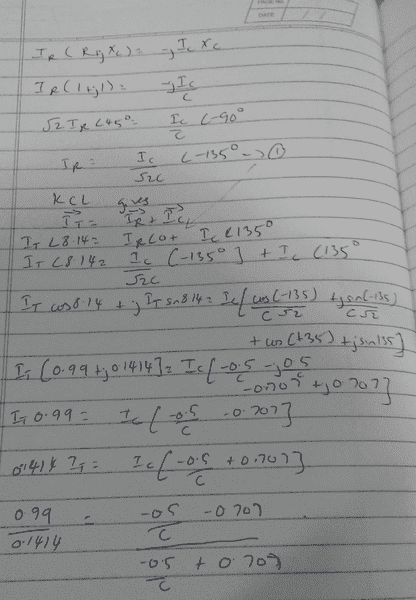 PAGE NO.
DATE
I_R (R+jX_L) = -j I_C X_C
I_R (1+j1) = -j I_C / C
√2 I_R ∠45° = I_C / C ∠-90°
I_R = I_C / √2C ∠-135° → ①
KCL gives
I_T = I_R + I_C
I_T ∠8.14 = I_R ∠0 + I_C ∠135°
I_T ∠8.14 = I_C / √2C [-135°] + I_C ∠135°
I_T cos8.14 + j I_T sn8.14 = I_C [cos(-135) / C√2 + j sn(-135) / C√2
+ cos(+35) + j sn135]
I_T [0.99 + j0.1414] = I_C [-0.5 / C - j0.5 / C
-0.707 + j0.707]
I_T 0.99 = I_C [-0.5 / C - 0.707]
0.1414 I_T = I_C [-0.5 / C + 0.707]
0.99 / 0.1414 = (-0.5 / C - 0.707) / (-0.5 / C + 0.707)